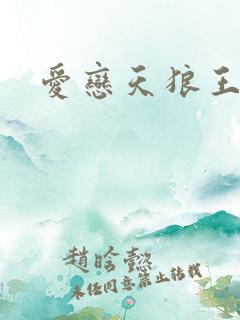 愛戀天狼王
趙晗懿
未经同意禁止转载